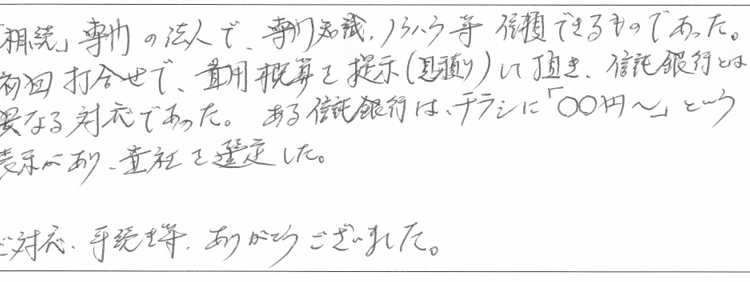 「相続」専門の法人で、専門知識、ノウハウ等信頼できるものであった。
初回打合せで、費用概算を提示(見積り)して頂き、信託銀行とは
異なる対応であった。ある信託銀行は、チラシに「〇〇円～」という
表示があり、貴社を選定した。
ご対応、手続き等、ありがとうございました。